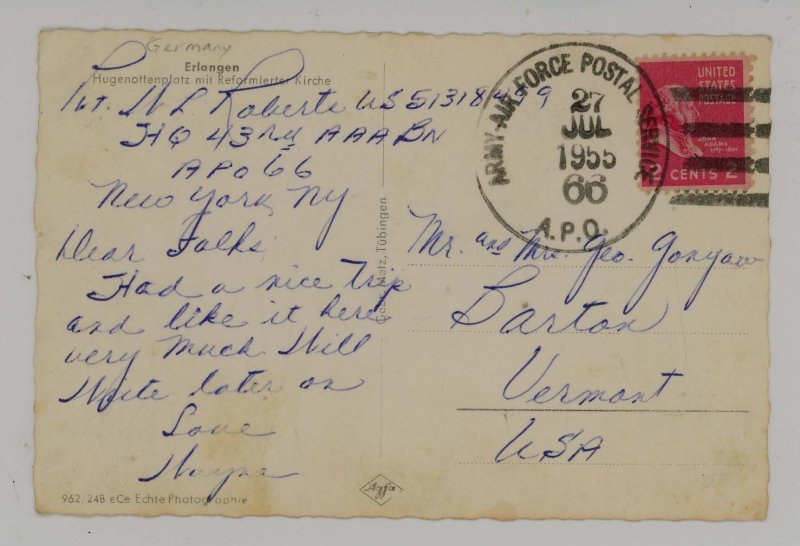 Germany
Erlangen
Hugenottenplatz mit Reformierter Kirche
Pvt. W L Roberts US 51318499
HQ 43rd AAA BN
APO 66
New York, NY
Dear Folks
Had a nice Trip
and like it here
very Much Will
Write later on
Love
Wayne
962/248 eCe Echte Photographie
Metz, Tübingen
Agfa
ARMY-AIR FORCE POSTAL SERVICE
27
JUL
1955
66
A.P.O.
UNITED
STATES
POSTAGE
JOHN
ADAMS
CENTS 2
Mr. and Mrs. Geo. Gonyaw
Barton
Vermont
USA